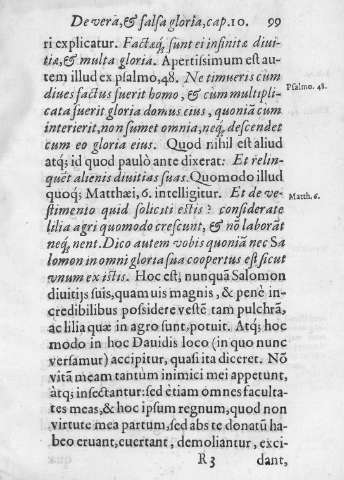 De verā, & falsa gloria, cap. 10. 99
ri explicatur. Factæq́; sunt ei infinitæ diui-
tiæ, & multa gloria. Apertissimum est au-
tem illud ex psalmo, 48. Ne timueris cùm
diues factus fuerit homo, & cùm multipli-
cata fuerit gloria domus eius, quoniā cùm
interierit, non sumet omnia, neq; descendet
cum eo gloria eius. Quod nihil est aliud
atq; id quod paulò ante dixerat: Et relin-
quēt alienis diuitias suas. Quomodo illud
quoq; Matthæi, 6. intelligitur. Et de ve-
stimento quid soliciti estis? considerate
lilia agri quomodo crescunt, & nō laborāt
neq; nent. Dico autem vobis quoniā nec Sa
lomon in omni gloria sua coopertus est sicut
vnum ex istis. Hoc est, nunquā Salomon
diuitijs suis, quamuis magnis, & penè in-
credibilibus possidere vestē tam pulchrā,
ac lilia quæ in agro sunt, potuit. Atq; hoc
modo in hoc Dauidis loco (in quo nunc
versamur) accipitur, quasi ita diceret. Nō
vitā meam tantùm inimici mei appetunt,
atq; insectantur: sed etiam omnes faculta-
tes meas, & hoc ipsum regnum, quod non
virtute mea partum, sed abs te donatū ha-
beo eruant, euertant, demoliantur, exci-
R3 dant,
Psalmo. 48.
Matth. 6.